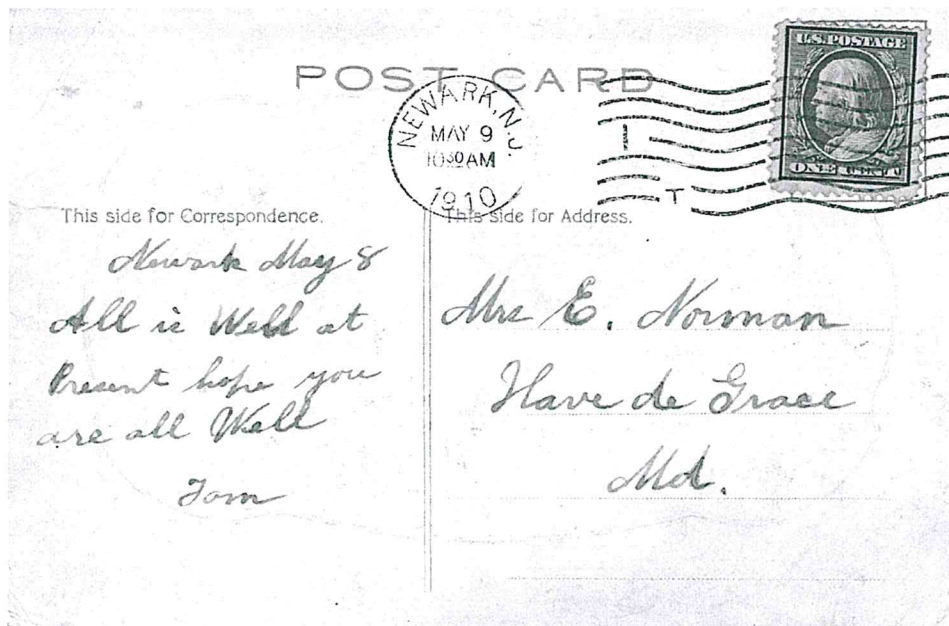 POST CARD
NEWARK, N.J.
MAY 9
10 30 AM
1910
U.S. POSTAGE
ONE CENT
I
T
This side for Correspondence.
Newark May 8
All is Well at
Present hope you
are all Well
Tom
This side for Address.
Mrs E. Norman
Havre de Grace
Md.